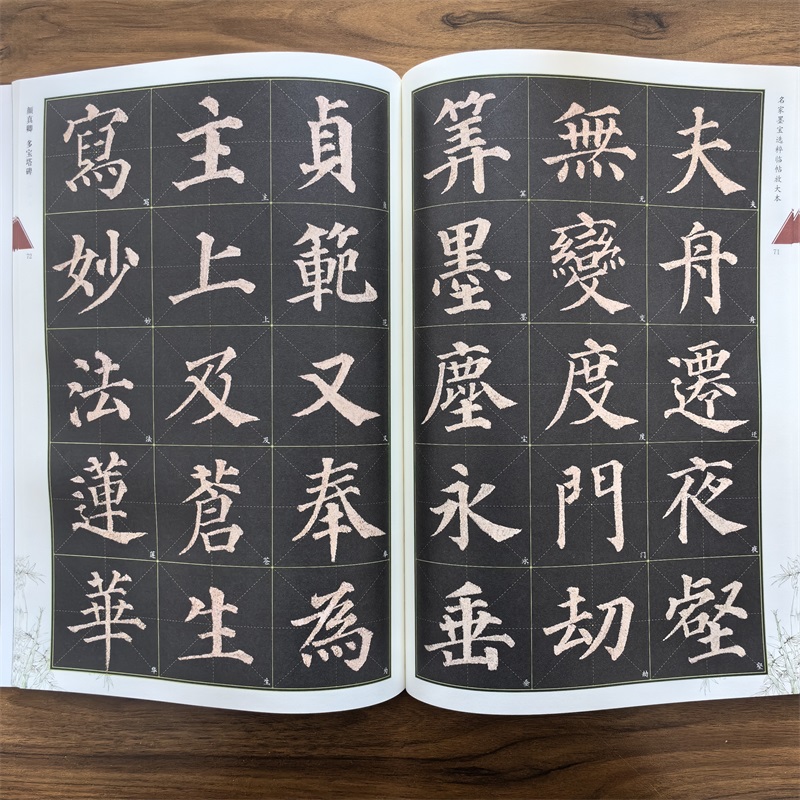 名家墨宝选粹临帖放大本
71
夫舟遷夜壑
無變度門劫
筭墨塵永垂
貞範又奉為
主上及蒼生
寫妙法蓮華
颜真卿 多宝塔碑
72